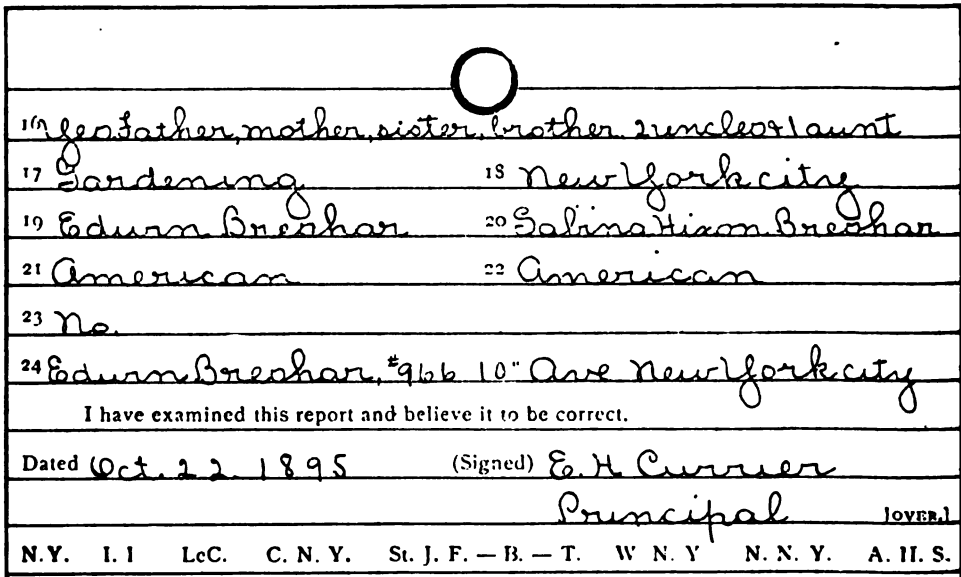 16 Yes father, mother, sister, brother 2 uncles & 1 aunt
17 Gardening 18 New York city
19 Edwin Breshar 20 Salina Hixon Breshar
21 American 22 American
23 No.
24 Edwin Breshar, #966 10" Ave New York city
I have examined this report and believe it to be correct.
Dated Oct. 22 1895 (Signed) E. H. Currier
Principal [OVER.]
N.Y. I. I LeC. C. N. Y. St. J. F. — B. — T. W N. Y N. N. Y. A. H. S.